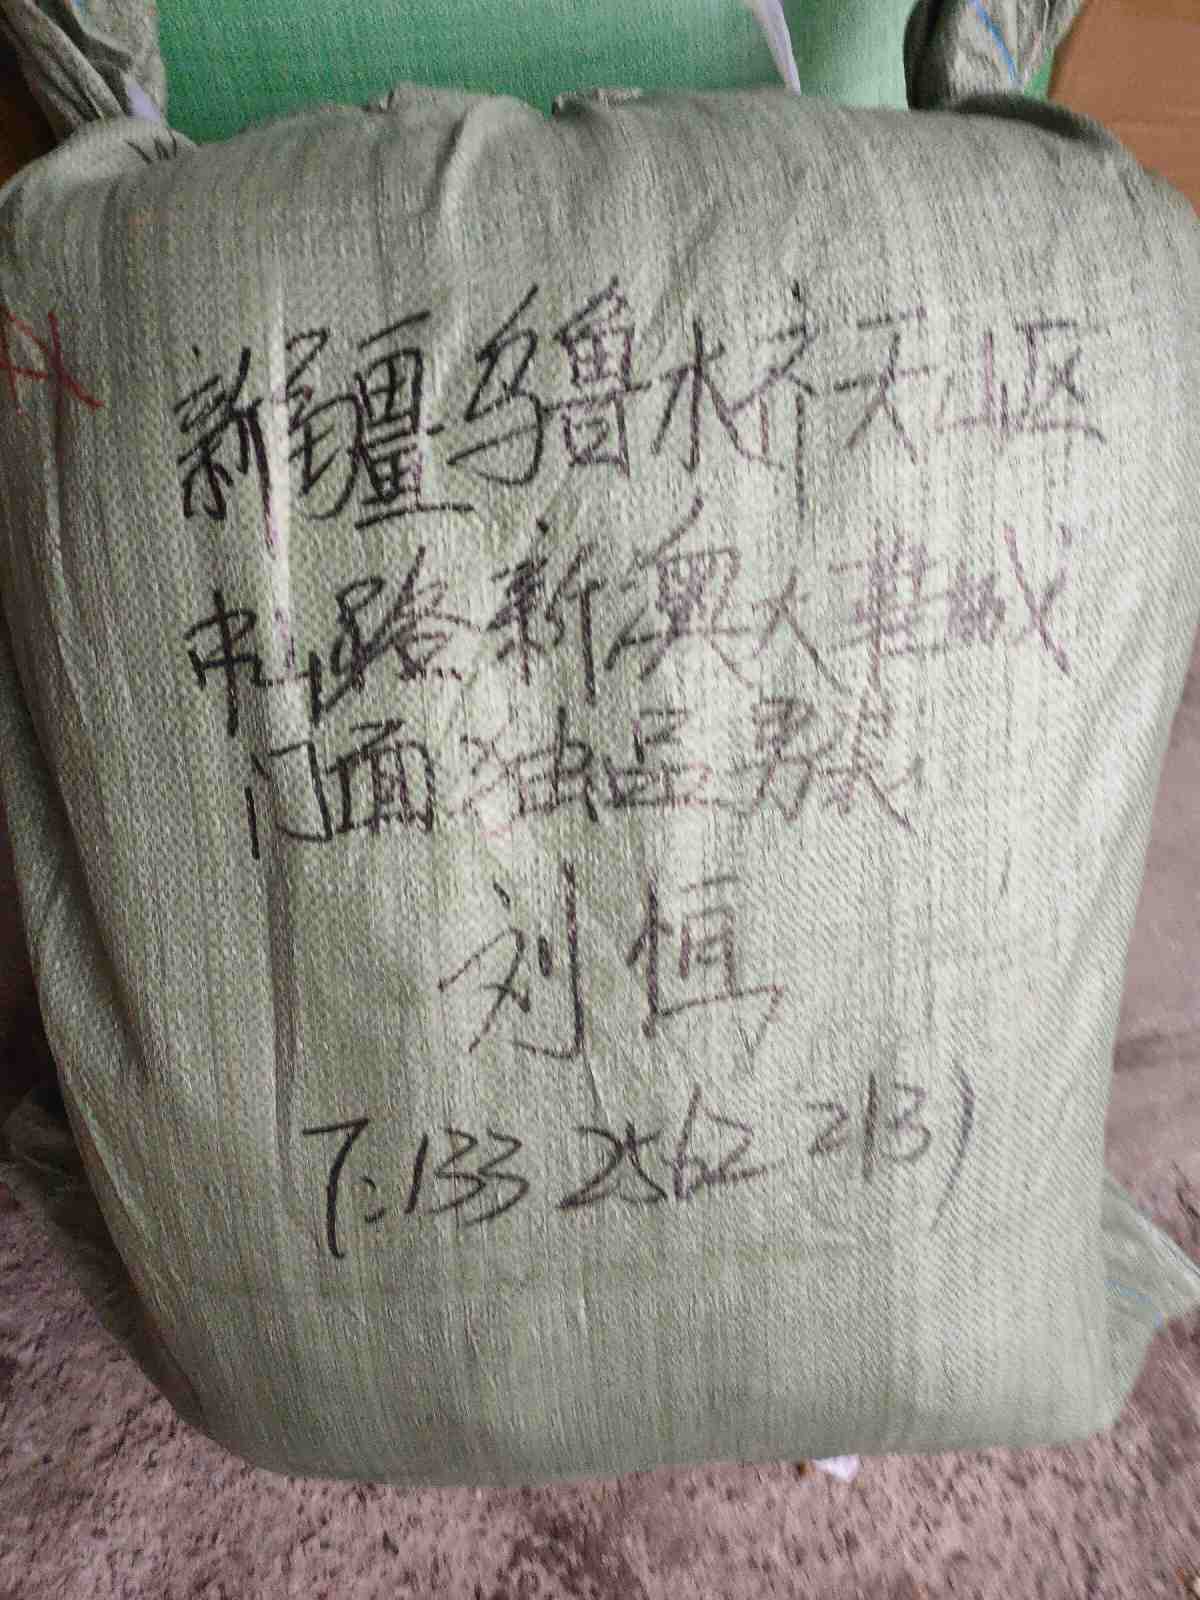 新疆乌鲁木齐天山区
中山路新澳大革城
门面油品男装
刘恒
T:133 2562 2131